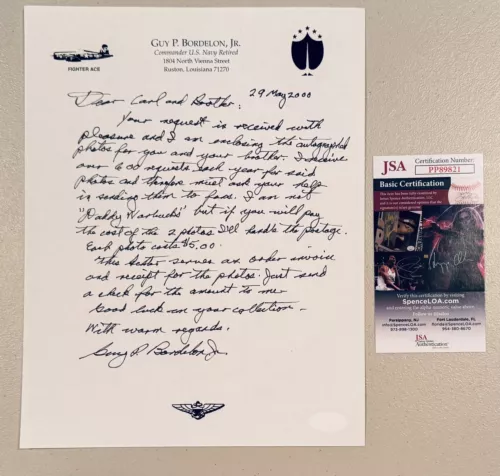 GUY P. BORDELON, JR.
Commander U.S. Navy Retired
1804 North Vienna Street
Ruston, Louisiana 71270
FIGHTER ACE
29 May 2000
Dear Carl and Brother:
Your request is received with
pleasure and I am enclosing the autographed
photos for you and your brother. I receive
over 600 requests each year for said
photos and therefore must ask your help
in sending them to fans. I am not
"Daddy Warbucks" but if you will pay
the cost of the 2 photos I'll handle the postage.
Each photo costs $5.00.
This letter serves as order invoice
and receipt for the photos. Just send
a check for the amount to me.
Good luck on your collection.
With warm regards,
Guy P. Bordelon Jr.
JSA
Certification Number:
PP89821
Basic Certification
Verify this certification by visiting
SpenceLOA.com
Parsippany, NJ
Fort Lauderdale, FL
JSA
Authentication